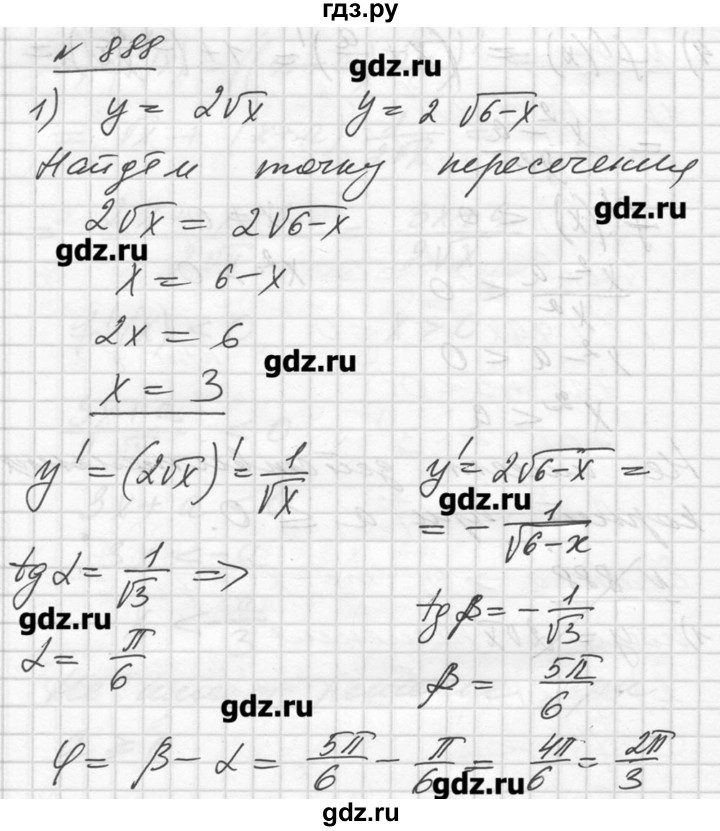 гдз.ру
№ 888
gdz.ru
1) y = 2√x y = 2 √6-x
Найдём точку пересечения
gdz.ru
2√x = 2√6-x
gdz.ru
x = 6-x
2x = 6
gdz.ru
x = 3
y' = (2√x)' = 1/√x y' = 2√6-x =
gdz.ru
= - 1/√6-x
tg α = 1/√3 =>
gdz.ru
tg β = - 1/√3
α = π/6
β = 5π/6
gdz.ru
φ = β - α = 5π/6 - π/6 = 4π/6 = 2π/3
gdz.ru
gdz.ru